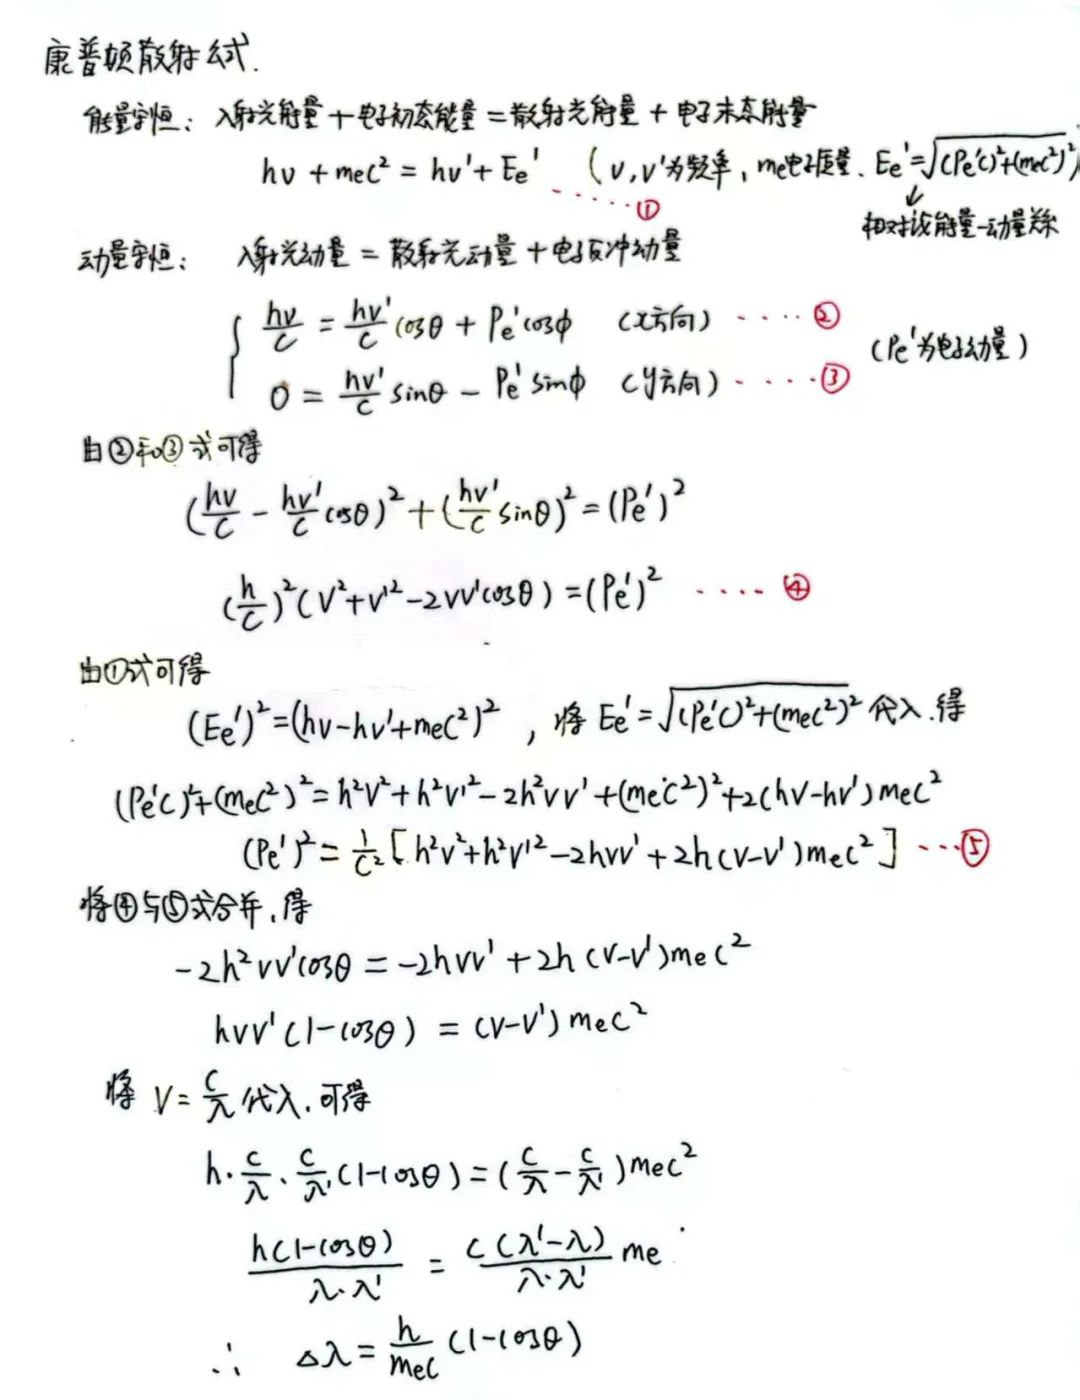 康普顿散射公式.
能量守恒: 入射光能量+电子初态能量=散射光能量+电子末态能量
hν + mec² = hν' + Ee' (ν,ν'为频率, me电子质量. Ee'=√(Pe'c)²+(mec²)²)
·······①
相对论能量-动量关系
动量守恒: 入射光动量=散射光动量+电子反冲动量
hν/c = hν'/c cosθ + Pe'cosφ (x方向) ····②
(Pe'为电子动量)
0 = hν'/c sinθ - Pe'sinφ (y方向) ·····③
由②和③式可得
(hν/c - hν'/c cosθ)² + (hν'/c sinθ)² = (Pe')²
(h/c)²(ν²+ν'²-2νν'cosθ) = (Pe')² ····④
由①式可得
(Ee')²=(hν-hν'+mec²)², 将 Ee'=√(Pe'c)²+(mec²)² 代入.得
(Pe'c)²+(mec²)²=h²ν²+h²ν'²-2h²νν'+(mec²)²+2(hν-hν')mec²
(Pe')²=1/c²[h²ν²+h²ν'²-2hνν'+2h(ν-ν')mec²] ···⑤
将④与⑤式合并,得
-2h²νν'cosθ=-2hνν'+2h(ν-ν')mec²
hνν'(1-cosθ) = (ν-ν')mec²
将 ν=c/λ 代入.可得
h·c/λ·c/λ'(1-cosθ)=(c/λ-c/λ')mec²
h(1-cosθ)/λ·λ' = c(λ'-λ)/λ·λ' me
∴ Δλ=h/mec (1-cosθ)